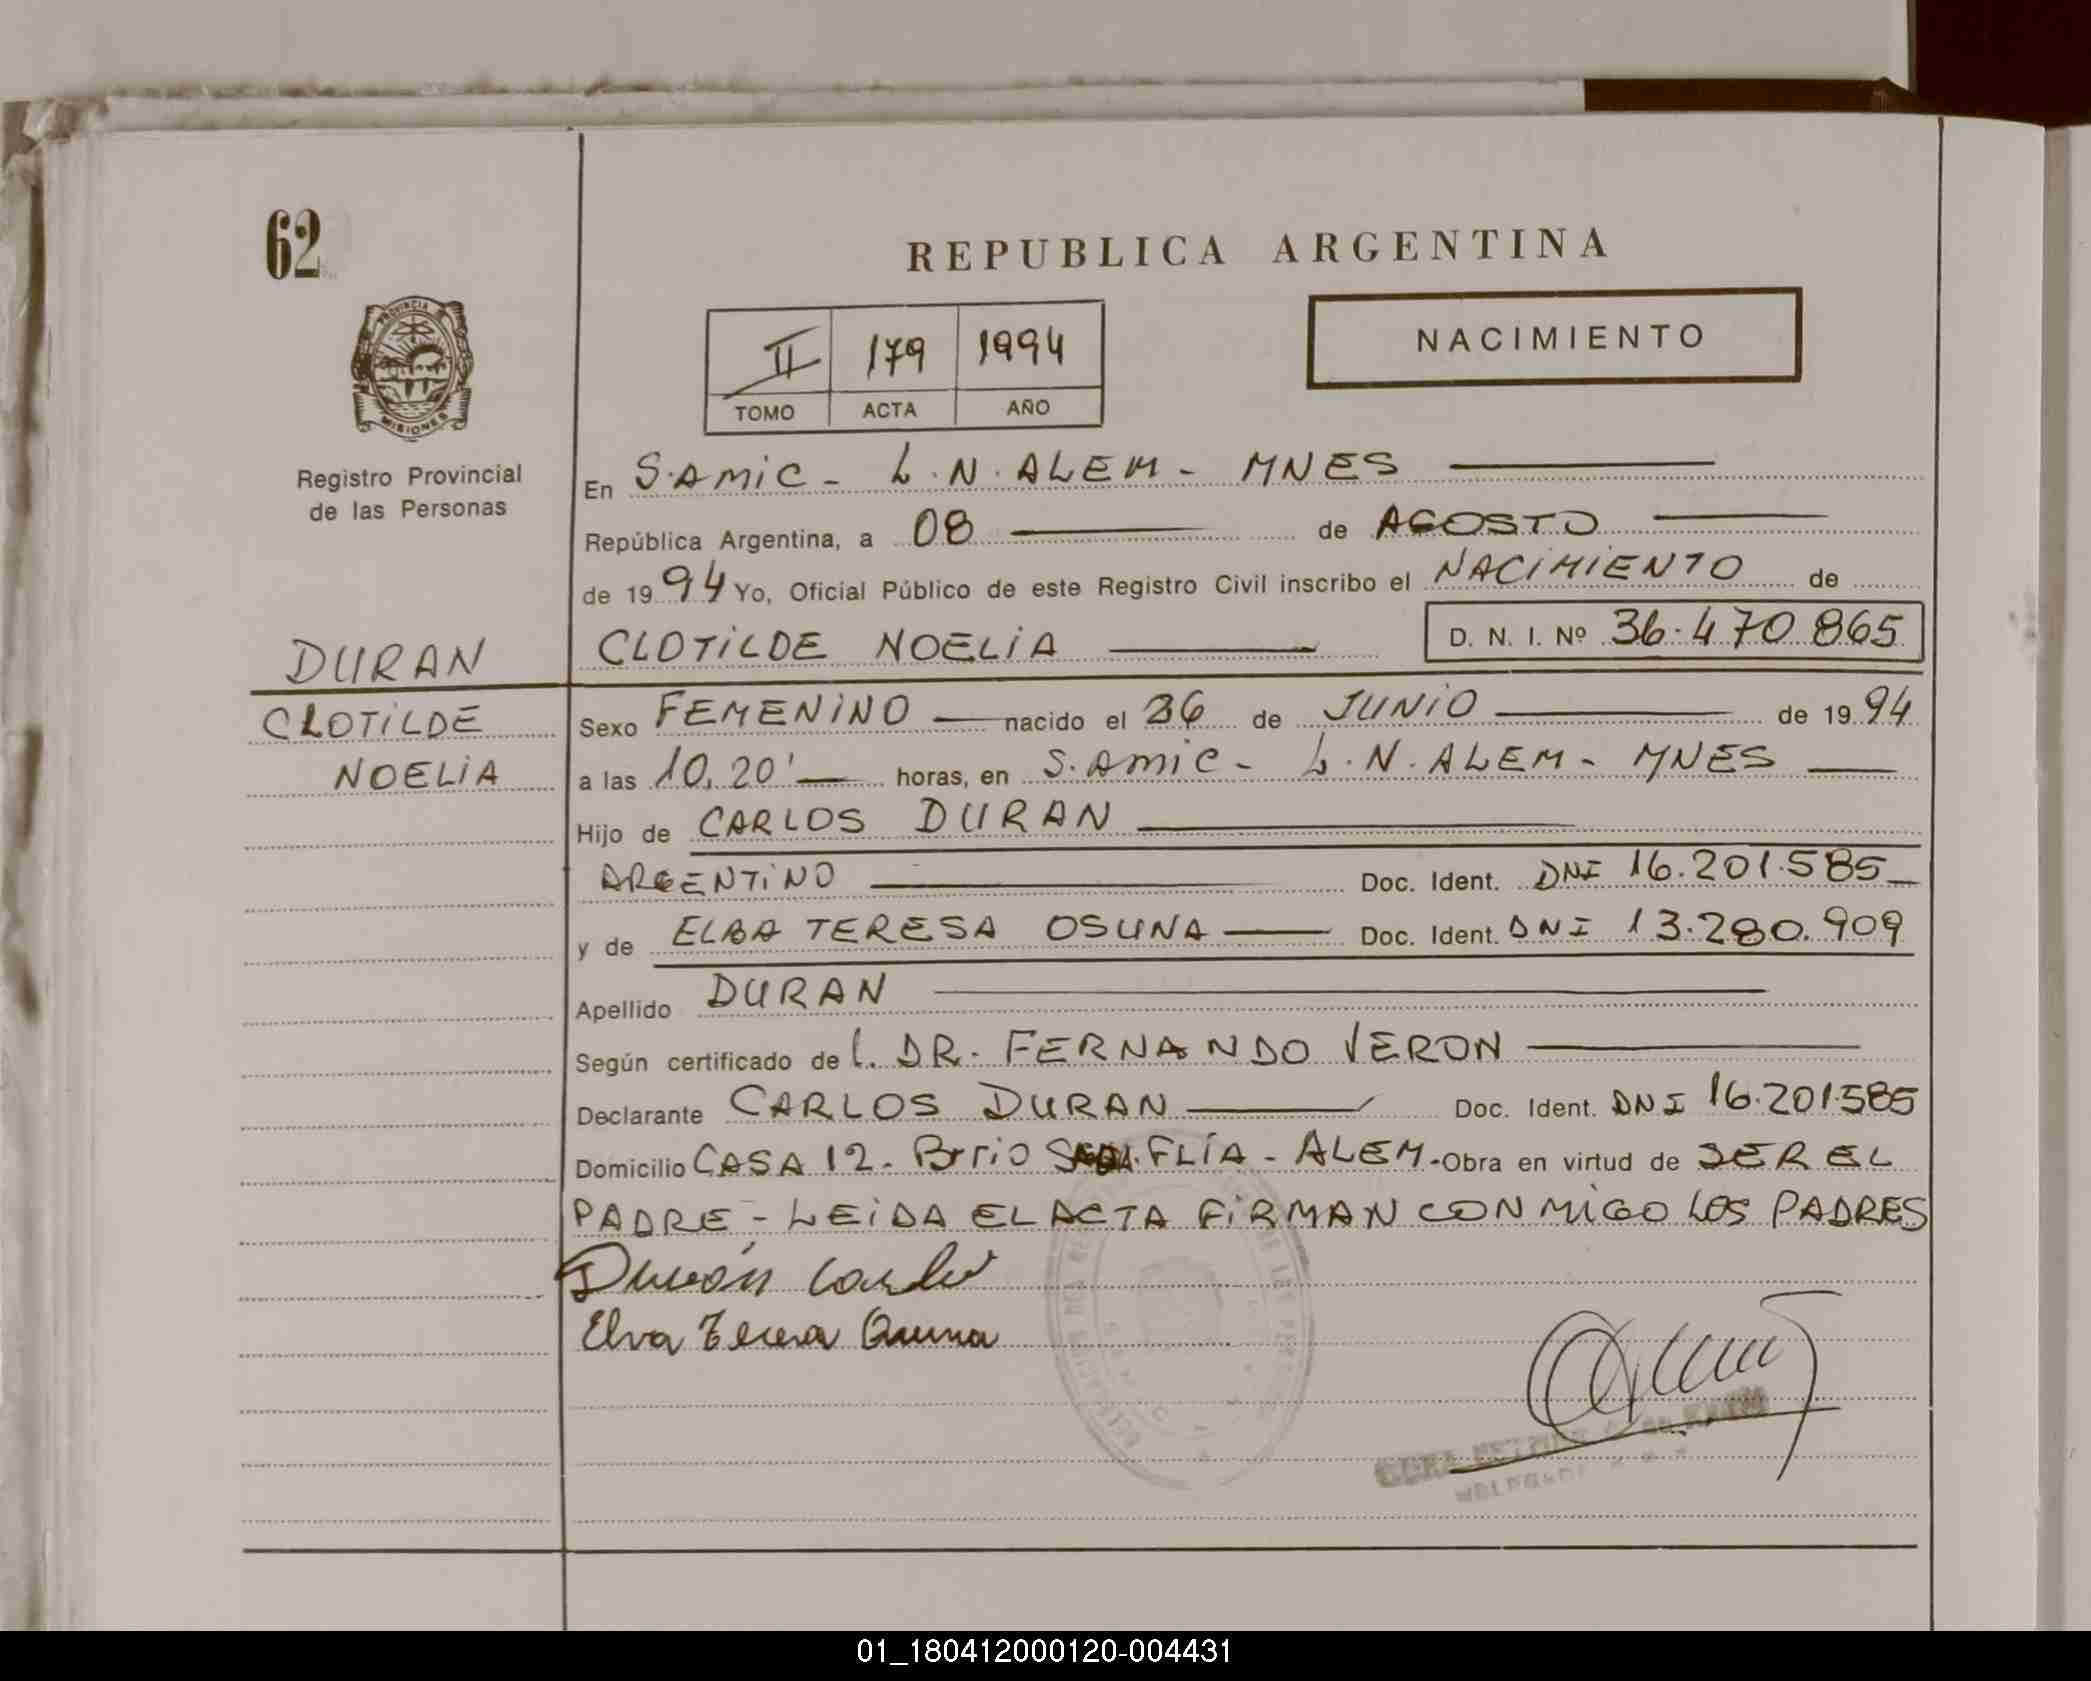 62
REPUBLICA ARGENTINA
PROVINCIA DE
MISIONES
Registro Provincial
de las Personas
II 179 1994
TOMO ACTA AÑO
NACIMIENTO
En S.AMIC - L.N.ALEM - MNES
República Argentina, a 08 de AGOSTO
de 1994 Yo, Oficial Público de este Registro Civil inscribo el NACIMIENTO de
DURAN
CLOTILDE NOELIA D. N. I. Nº 36.470.865
CLOTILDE
NOELIA
Sexo FEMENINO nacido el 26 de JUNIO de 1994
a las 10,20' horas, en S.AMIC - L.N.ALEM - MNES
Hijo de CARLOS DURAN
ARGENTINO Doc. Ident. DNI 16.201.585
y de ELBA TERESA OSUNA Doc. Ident. DNI 13.280.909
Apellido DURAN
Según certificado de L. DR. FERNANDO VERON
Declarante CARLOS DURAN Doc. Ident. DNI 16.201.585
Domicilio CASA 12 - Brrio FLIA - ALEM - Obra en virtud de SER EL
PADRE - LEIDA EL ACTA FIRMAN CONMIGO LOS PADRES
Durán Carlos
Elva Teresa Osuna
01_180412000120-004431